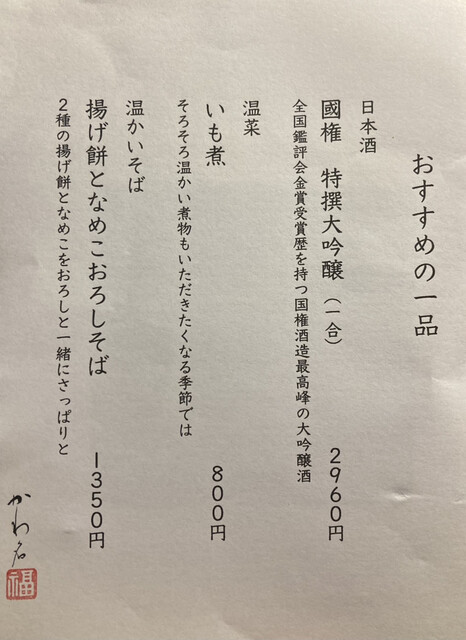 おすすめの一品
日本酒
國権 特撰大吟醸（一合） 2960円
全国鑑評会金賞受賞歴を持つ国権酒造最高峰の大吟醸酒
温菜
いも煮 800円
そろそろ温かい煮物もいただきたくなる季節では
温かいそば
揚げ餅となめこおろしそば 1350円
2種の揚げ餅となめこをおろしと一緒にさっぱりと
かわ名
福